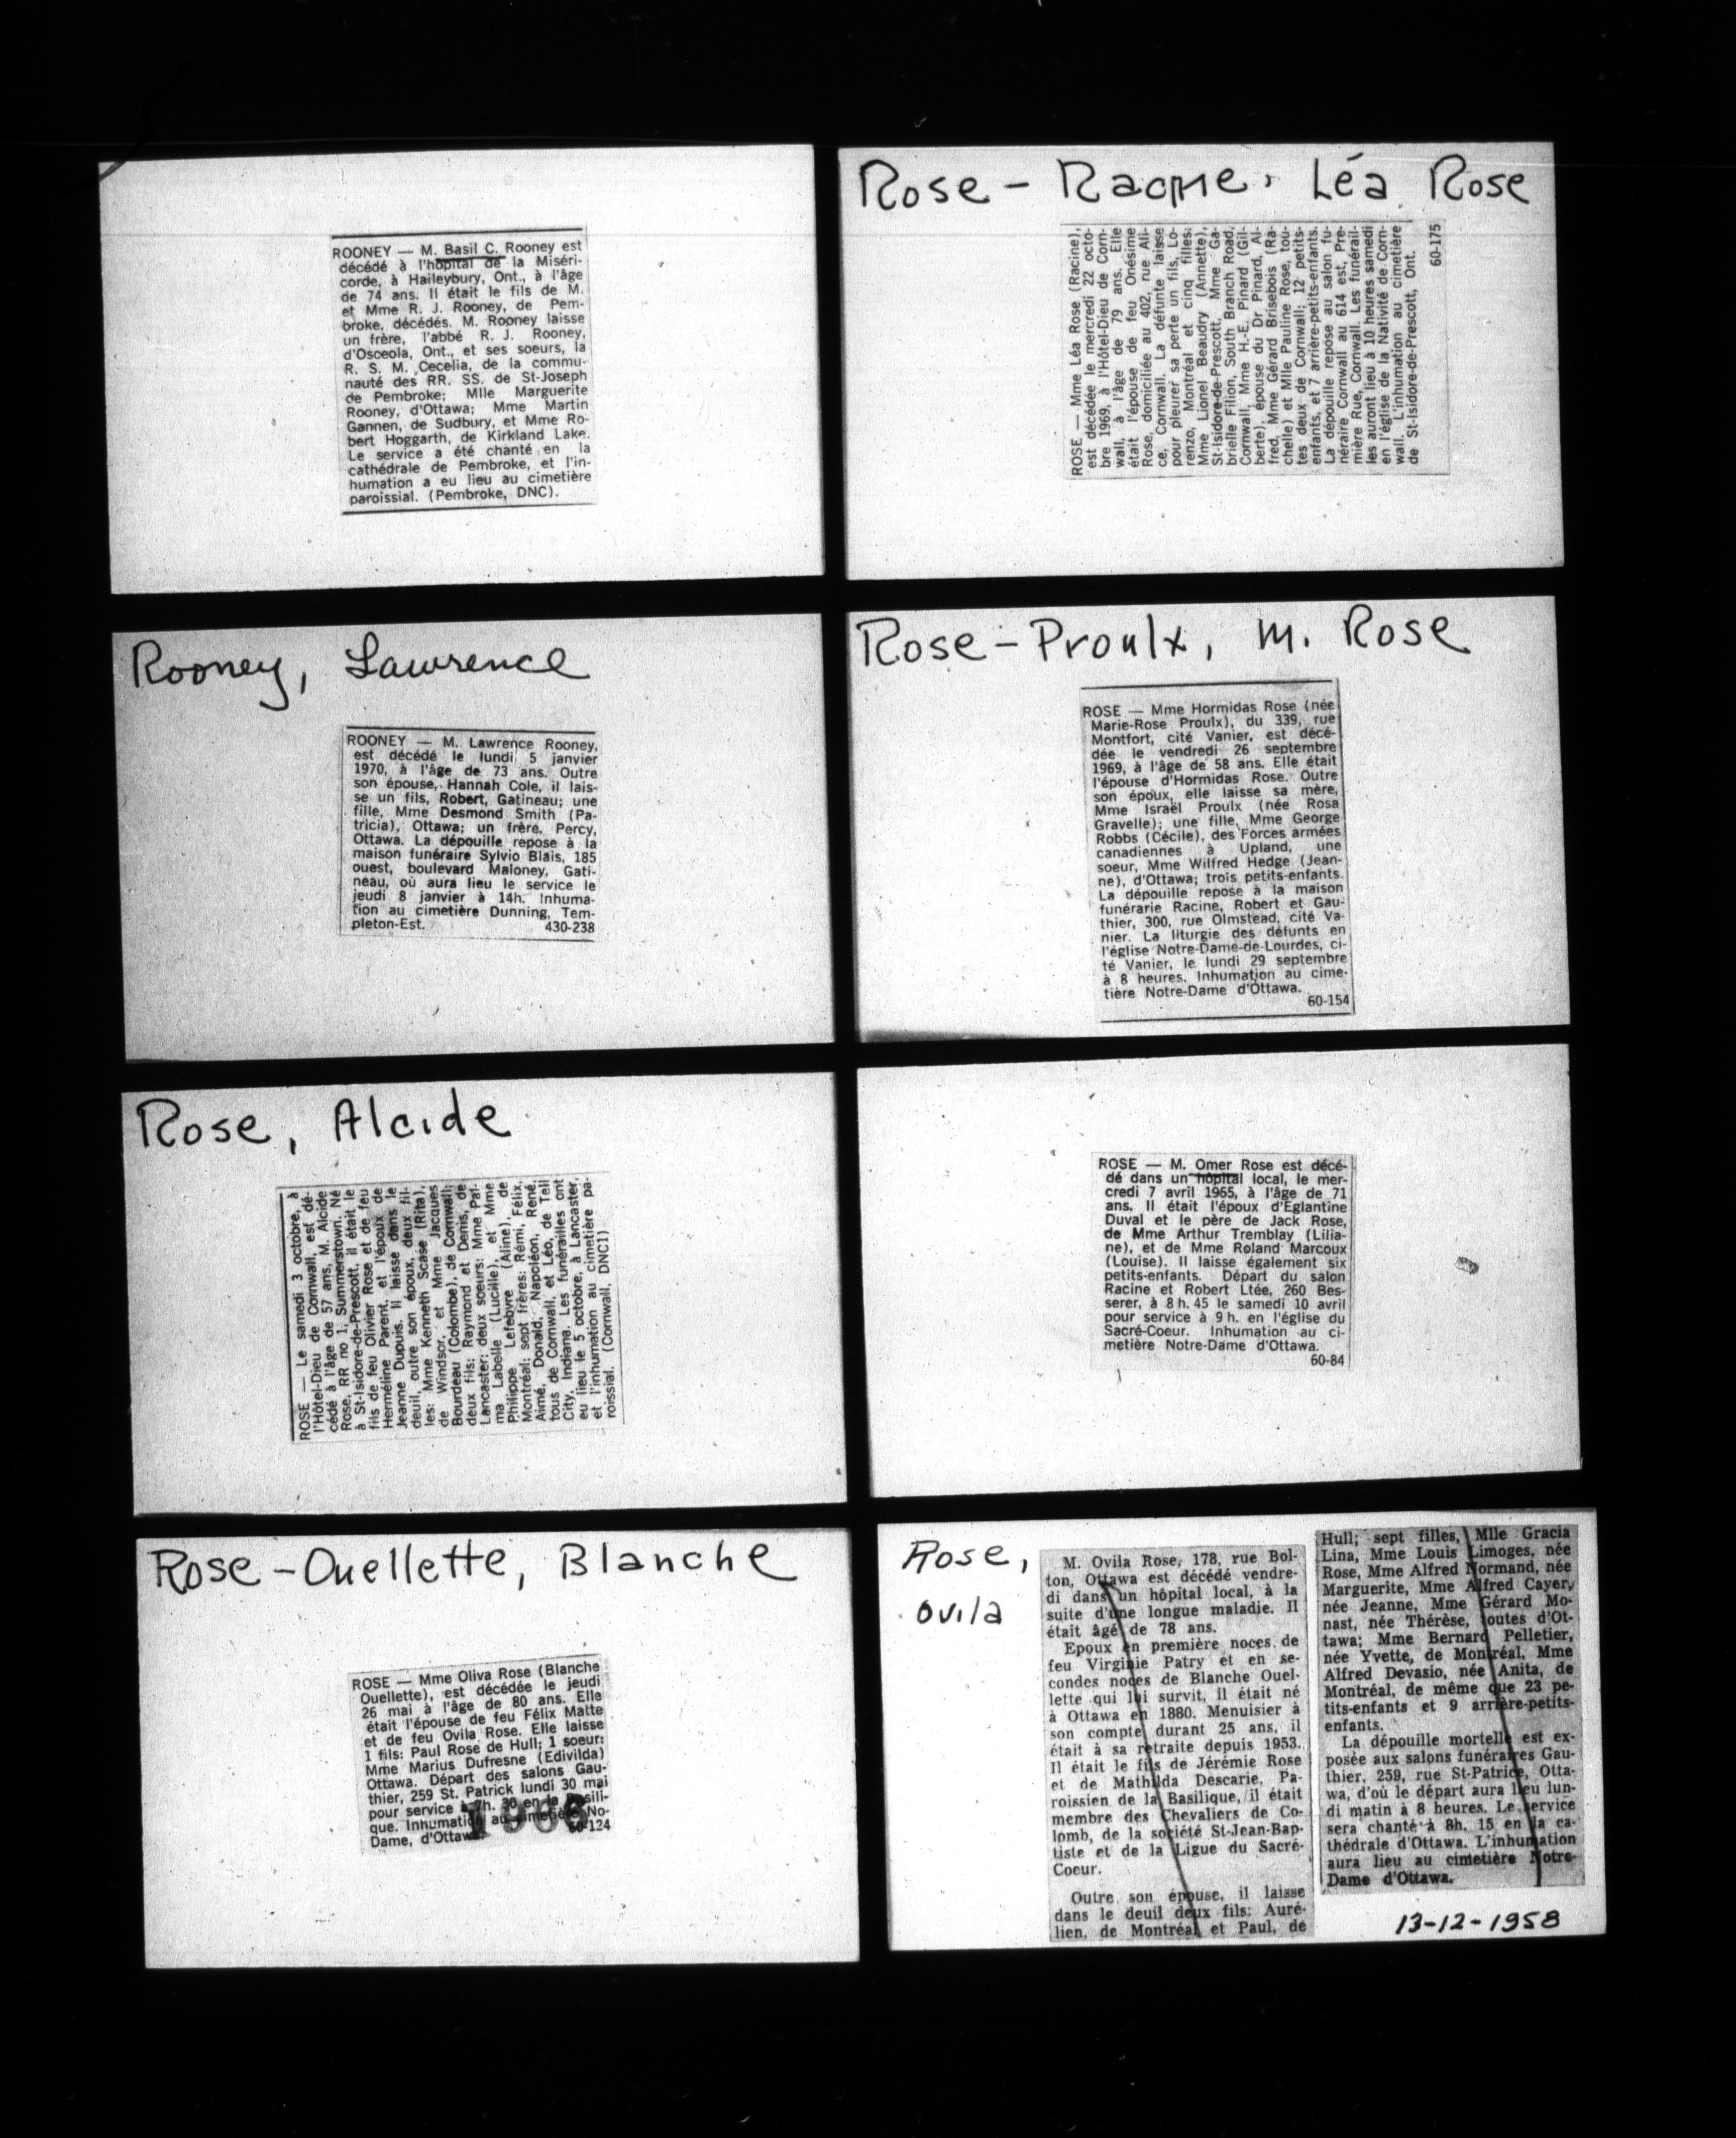 ROONEY — M. Basil C. Rooney est
décédé à l'hôpital de la Miséri-
corde, à Haileybury, Ont., à l'âge
de 74 ans. Il était le fils de M.
et Mme R. J. Rooney, de Pem-
broke, décédés. M. Rooney laisse
un frère, l'abbé R. J. Rooney,
d'Osceola, Ont., et ses soeurs, la
R. S. M. Cecelia, de la commu-
nauté des RR. SS. de St-Joseph
de Pembroke; Mlle Marguerite
Rooney, d'Ottawa; Mme Martin
Gannen, de Sudbury, et Mme Ro-
bert Hoggarth, de Kirkland Lake.
Le service a été chanté en la
cathédrale de Pembroke, et l'in-
humation a eu lieu au cimetière
paroissial. (Pembroke, DNC).
Rooney, Lawrence
ROONEY — M. Lawrence Rooney,
est décédé le lundi 5 janvier
1970, à l'âge de 73 ans. Outre
son épouse, Hannah Cole, il lais-
se un fils, Robert, Gatineau; une
fille, Mme Desmond Smith (Pa-
tricia), Ottawa; un frère, Percy,
Ottawa. La dépouille repose à la
maison funéraire Sylvio Blais, 185
ouest, boulevard Maloney, Gati-
neau, où aura lieu le service le
jeudi 8 janvier à 14h. Inhuma-
tion au cimetière Dunning, Tem-
pleton-Est. 430-238
Rose, Alcide
ROSE — Le samedi 3 octobre, à
l'Hôtel-Dieu de Cornwall, est dé-
cédé à l'âge de 57 ans, M. Alcide
Rose, RR no 1, Summerstown. Né
à St-Isidore-de-Prescott, il était le
fils de feu Olivier Rose et de feu
Herméline Parent, et l'époux de
Jeanne Dupuis. Il laisse dans le
deuil, outre son époux, deux fil-
les: Mme Kenneth Scase (Rita),
de Windsor, et Mme Jacques
Bourdeau (Colombe), de Cornwall;
deux fils: Raymond et Denis, de
Lancaster; deux soeurs: Mme Pal-
ma Labelle (Lucille), et Mme
Philippe Lefebvre (Aline), de
Montréal; sept frères: Rémi, Félix,
Aimé, Donald, Napoléon, René,
tous de Cornwall, et Léo, de Tell
City, Indiana. Les funérailles ont
eu lieu le 5 octobre, à Lancaster,
et l'inhumation au cimetière pa-
roissial. (Cornwall, DNC1)
Rose-Ouellette, Blanche
ROSE — Mme Oliva Rose (Blanche
Ouellette), est décédée le jeudi
26 mai à l'âge de 80 ans. Elle
était l'épouse de feu Félix Matte
et de feu Ovila Rose. Elle laisse
1 fils: Paul Rose de Hull; 1 soeur:
Mme Marius Dufresne (Edivilda)
Ottawa. Départ des salons Gau-
thier, 259 St. Patrick lundi 30 mai
pour service à 7h. 30 en la Basili-
que. Inhumation au cimetière No-
Dame, d'Ottawa. 60-124
1966
Rose - Racine, Léa Rose
ROSE — Mme Léa Rose (Racine),
est décédée le mercredi 22 octo-
bre 1969, à l'Hôtel-Dieu de Corn-
wall, à l'âge de 79 ans. Elle
était l'épouse de feu Onésime
Rose, domiciliée au 402, rue Ali-
ce, Cornwall. La défunte laisse
pour pleurer sa perte un fils, Lo-
renzo, Montréal et cinq filles:
Mme Lionel Beaudry (Annette),
St-Isidore-de-Prescott, Mme Ga-
brielle Filion, South Branch Road,
Cornwall, Mme H.-E. Pinard (Gil-
berte), épouse du Dr Pinard, Al-
fred, Mme Gérard Brisebois (Ra-
chelle) et Mlle Pauline Rose, tou-
tes deux de Cornwall; 12 petits-
enfants, et 7 arrière-petits-enfants.
La dépouille repose au salon fu-
néraire Cornwall au 614 est, Pre-
mière Rue, Cornwall. Les funérail-
les auront lieu à 10 heures samedi
en l'église de la Nativité de Corn-
wall. L'inhumation au cimetière
de St-Isidore-de-Prescott, Ont.
60-175
Rose-Proulx, M. Rose
ROSE — Mme Hormidas Rose (née
Marie-Rose Proulx), du 339, rue
Montfort, cité Vanier, est décé-
dée le vendredi 26 septembre
1969, à l'âge de 58 ans. Elle était
l'épouse d'Hormidas Rose. Outre
son époux, elle laisse sa mère,
Mme Israël Proulx (née Rosa
Gravelle); une fille, Mme George
Robbs (Cécile), des Forces armées
canadiennes à Upland, une
soeur, Mme Wilfred Hedge (Jean-
ne), d'Ottawa; trois petits-enfants.
La dépouille repose à la maison
funérarie Racine, Robert et Gau-
thier, 300, rue Olmstead, cité Va-
nier. La liturgie des défunts en
l'église Notre-Dame-de-Lourdes, ci-
té Vanier, le lundi 29 septembre
à 8 heures. Inhumation au cime-
tière Notre-Dame d'Ottawa.
60-154
ROSE — M. Omer Rose est décé-
dé dans un hôpital local, le mer-
credi 7 avril 1965, à l'âge de 71
ans. Il était l'époux d'Eglantine
Duval et le père de Jack Rose,
de Mme Arthur Tremblay (Lilia-
ne), et de Mme Roland Marcoux
(Louise). Il laisse également six
petits-enfants. Départ du salon
Racine et Robert Ltée, 260 Bes-
serer, à 8 h. 45 le samedi 10 avril
pour service à 9 h. en l'église du
Sacré-Coeur. Inhumation au ci-
metière Notre-Dame d'Ottawa.
60-84
Rose,
Ovila
M. Ovila Rose, 178, rue Bol-
ton, Ottawa est décédé vendre-
di dans un hôpital local, à la
suite d'une longue maladie. Il
était âgé de 78 ans.
Epoux en première noces de
feu Virginie Patry et en se-
condes noces de Blanche Ouel-
lette qui lui survit, il était né
à Ottawa en 1880. Menuisier à
son compte durant 25 ans, il
était à sa retraite depuis 1953.
Il était le fils de Jérémie Rose
et de Mathilda Descarie. Pa-
roissien de la Basilique, il était
membre des Chevaliers de Co-
lomb, de la société St-Jean-Bap-
tiste et de la Ligue du Sacré-
Coeur.
Outre son épouse, il laisse
dans le deuil deux fils: Auré-
lien, de Montréal et Paul, de
Hull; sept filles, Mlle Gracia
Lina, Mme Louis Limoges, née
Rose, Mme Alfred Normand, née
Marguerite, Mme Alfred Cayer,
née Jeanne, Mme Gérard Mo-
nast, née Thérèse, toutes d'Ot-
tawa; Mme Bernard Pelletier,
née Yvette, de Montréal, Mme
Alfred Devasio, née Anita, de
Montréal, de même que 23 pe-
tits-enfants et 9 arrière-petits-
enfants.
La dépouille mortelle est ex-
posée aux salons funéraires Gau-
thier, 259, rue St-Patrice, Otta-
wa, d'où le départ aura lieu lun-
di matin à 8 heures. Le service
sera chanté à 8h. 15 en la ca-
thédrale d'Ottawa. L'inhumation
aura lieu au cimetière Notre-
Dame d'Ottawa.
13-12-1958